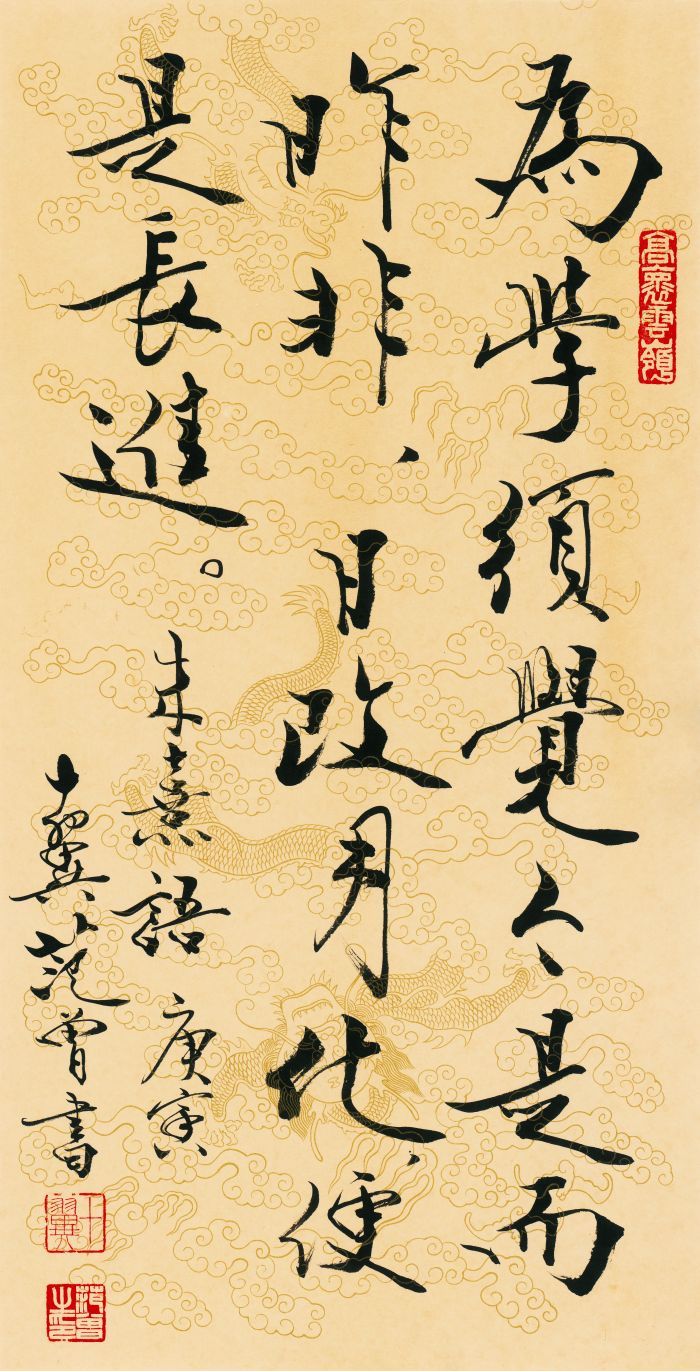 為學須覺今是而
昨非、日改月化便
是長進。
朱熹語 庚寅
十翼范曾書
十翼
范曾之印